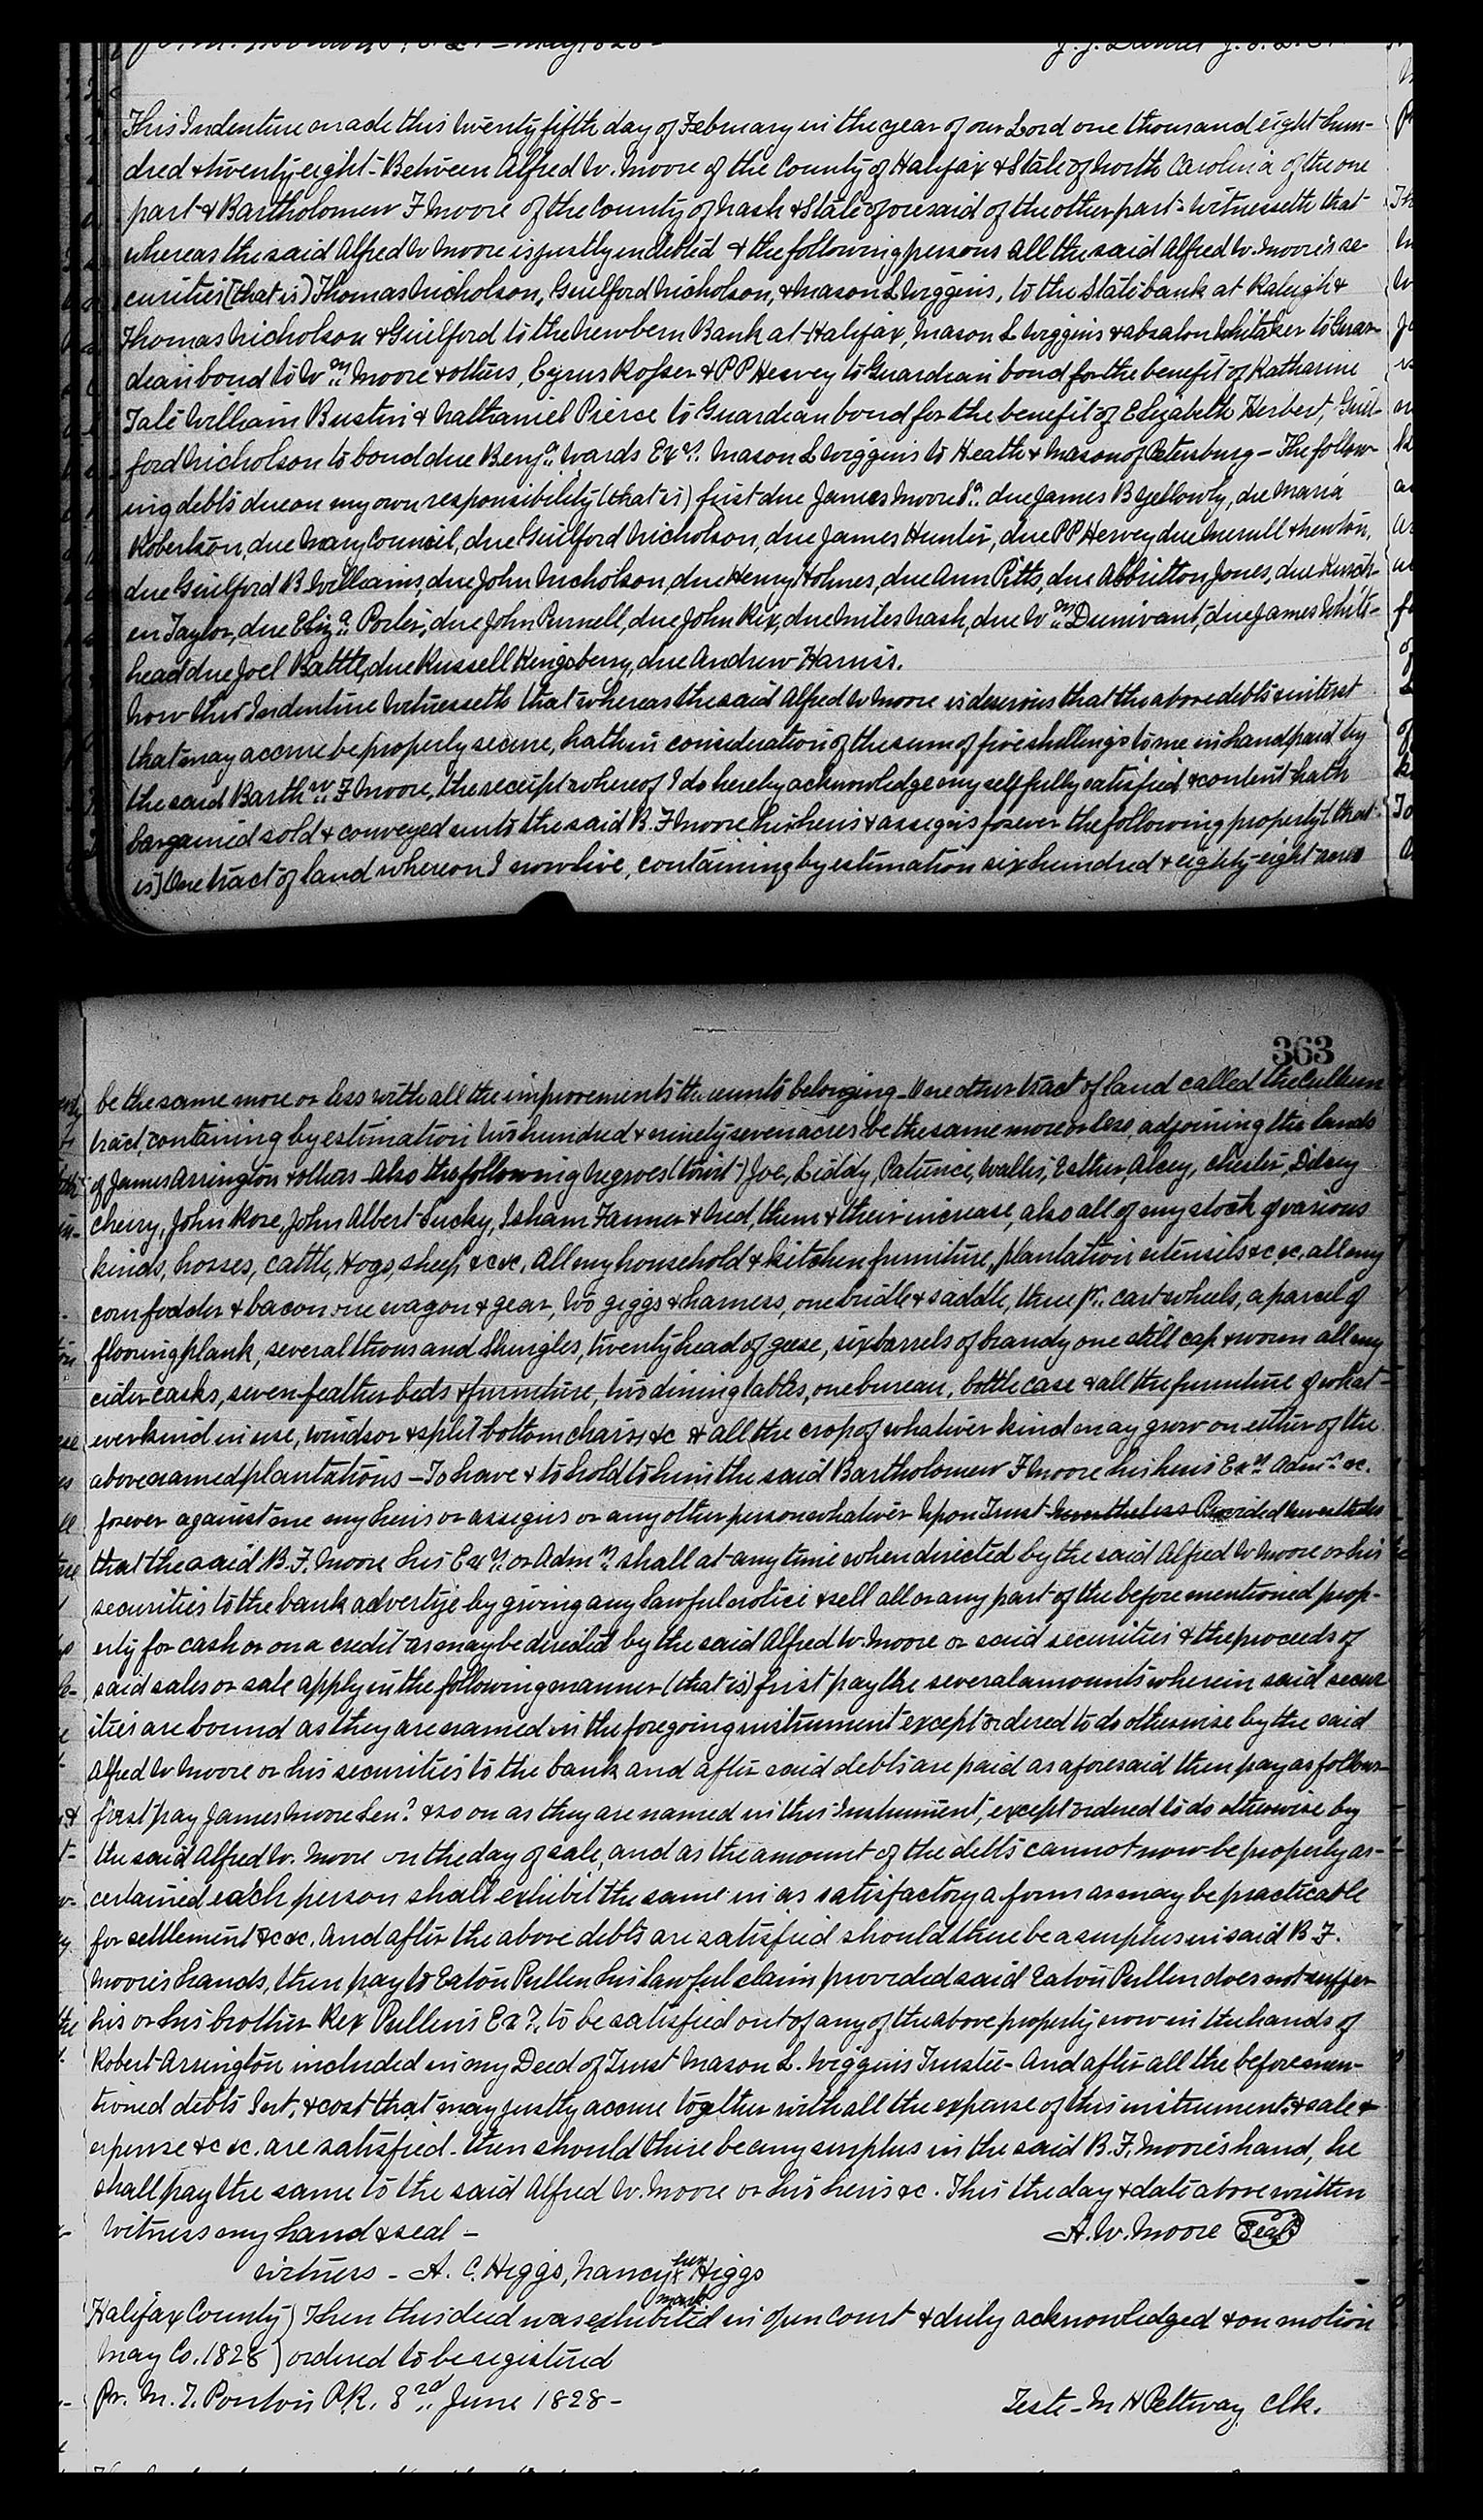 This Indenture made this twenty fifth day of February in the year of our Lord one thousand eight hun-
dred & twenty-eight - Between Alfred W. Moore of the County of Halifax & State of North Carolina of the one
part & Bartholomew F Moore of the County of Nash & State aforesaid of the other part - Witnesseth that
whereas the said Alfred W Moore is justly indebted & the following persons all the said Alfred W. Moore's se-
curities (that is) Thomas Nicholson, Guilford Nicholson, & Mason L Wiggins, to the State bank at Raleigh &
Thomas Nicholson & Guilford to the Newbern Bank at Halifax, Mason L Wiggins & Absalon Whitaker to Guar-
dean bond to Wm Moore & others, Cyrus Rosser & P P Hervey to Guardean bond for the benefit of Katharine
Tale William Bustin & Nathaniel Pierce to Guardean bond for the benefit of Elizabeth Herbert, Guil-
ford Nicholson to bond due Benja Wards Exr. Mason L Wiggins to Heath & Mason of Petersburg - The follow-
ing debts due on my own responsibility (that is) first due James Moore Sr. due James B Yellowly, due Maria
Robertson, due Mary Council, due Guilford Nicholson, due James Hunter, due P P Hervey due Merull & Newton,
due Guilford B. Williams, due John Nicholson, due Henry Holmes, due Ann Pitts, due Abbritton Jones, due
en Taylor, due Eliza Porter, due John Purnell, due John Rix, due Miles Nash, due Wm Dunivant, due James White-
head due Joel Battle, due Russell Kingsberry, due Andrew Harris.
Now this Indenture Witnesseth that whereas the said Alfred W Moore is desirous that the above debts & interest
that may accrue be properly secure, hath in consideration of the sum of five shillings to me in hand paid by
the said Barthw F Moore, the receipt whereof I do hereby acknowledge myself fully satisfied & content hath
bargained sold & conveyed unto the said B. F Moore his heirs & assigns forever the following property (that
is) One tract of land whereon I now live, containing by estimation six hundred & eighty-eight acres
363
be the same more or less with all the improvements thereunto belonging - One other tract of land called the Cullum
tract, containing by estimation two hundred & ninety seven acres be the same more or less, adjoining the lands
of James Arrington & others - Also the following negroes (towit) Joe, Liddy, Patience, Wallis, Esther, Alcey, Chester, Dilsey
cherry, John Rose, John Albert Sucky, Isham Fanner & Ned, them & their increase, also all of my stock of various
kinds, hosses, cattle, Hogs, sheep &c &c. all my household & kitchen furniture, plantation utensils &c &c. all my
corn fodder & bacon one wagon & gear, two giggs & harness, one bridle & saddle, three pr. cart wheels, a parcel of
flooring plank, several thousand shingles, twenty head of geese, six barrels of brandy one still cap & worm all my
cider casks, seven feather beds & furniture, two dining tables, one bureau, bottle case & all the furniture of what-
ever kind in use, windsor & split bottom chairs &c & all the crop of whatever kind may grow on either of the
above named plantations - To have & to hold to him the said Bartholomew F Moore his heirs Exrs Admrs &c.
forever against me my heirs or assigns or any other person whatever Upon Trust nevertheless Provided nevertheless
that the said B. F. Moore his Exr. or Admr. shall at any time when directed by the said Alfred W Moore or his
securities to the bank advertise by giving any lawful notice & sell all or any part of the before mentioned prop-
erty for cash or on a credit as may be directed by the said Alfred W. Moore or said securities & the proceeds of
said sales or sale apply in the following manner (that is) first pay the several amounts wherein said secur
ities are bound as they are named in the foregoing instrument except ordered to do otherwise by the said
Alfred W Moore or his securities to the bank and after said debts are paid as aforesaid then pay as follows
first pay James Moore Senr. & so on as they are named in this Instrument, except ordered to do otherwise by
the said Alfred W. Moore on the day of sale, and as the amount of the debts cannot now be properly as-
certained each person shall exhibit the same in as satisfactory a form as may be practicable
for settlement &c &c. And after the above debts are satisfied should there be a surplus in said B. F.
Moore's hands, then pay to Eaton Pullen his lawful claim provided said Eaton Pullen does not suffer
his or his brother Rex Pullens Exr. to be satisfied out of any of the above property now in the hands of
Robert Arrington included in my Deed of Trust Mason L. Wiggins Trustee - And after all the beforemen-
tioned debts Int, & cost that may justly accrue together with all the expense of this instrument & sale &
expense &c &c. are satisfied - then should there be any surplus in the said B. F. Moore's hand, he
shall pay the same to the said Alfred W. Moore or his heirs &c. This the day & date above written
Witness my hand & seal - A. W. Moore Seal
witness - A. C. Higgs, Nancy her x mark Higgs
Halifax County ) Then this deed was exhibited in open court & duly acknowledged & on motion
May Co. 1828 ) ordered to be registered
Pr. M. T. Ponton P.R. 3rd June 1828 - Teste - M H Pettway Clk.